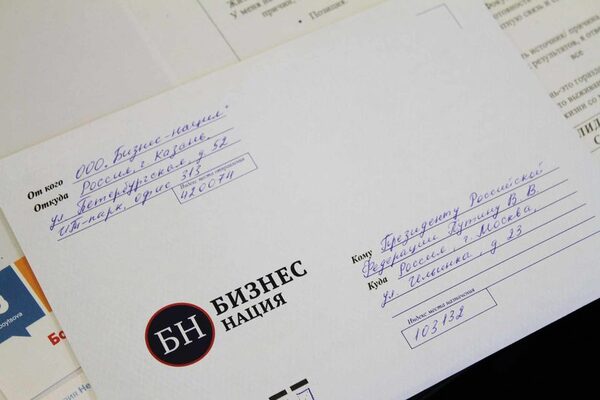 У меня
причин,
Позиция.
От кого ООО "Бизнес-Нация"
Откуда Россия, г. Казань
ул Петербургская, д 52
ИТ-парк, офис 313
Индекс места отправления
420074
Кому Президенту Российской
Федерации Путину В. В.
Куда Россия г. Москва,
ул. Ильинка, д 23
Индекс места назначения
103132
БН
БИЗНЕС
НАЦИЯ
все